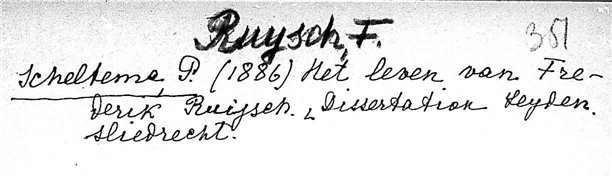 Ruysch, F. 351
Scheltema, P. (1886) Het leven van Fre-
derik Ruijsch. Dissertation Leyden.
Sliedrecht.